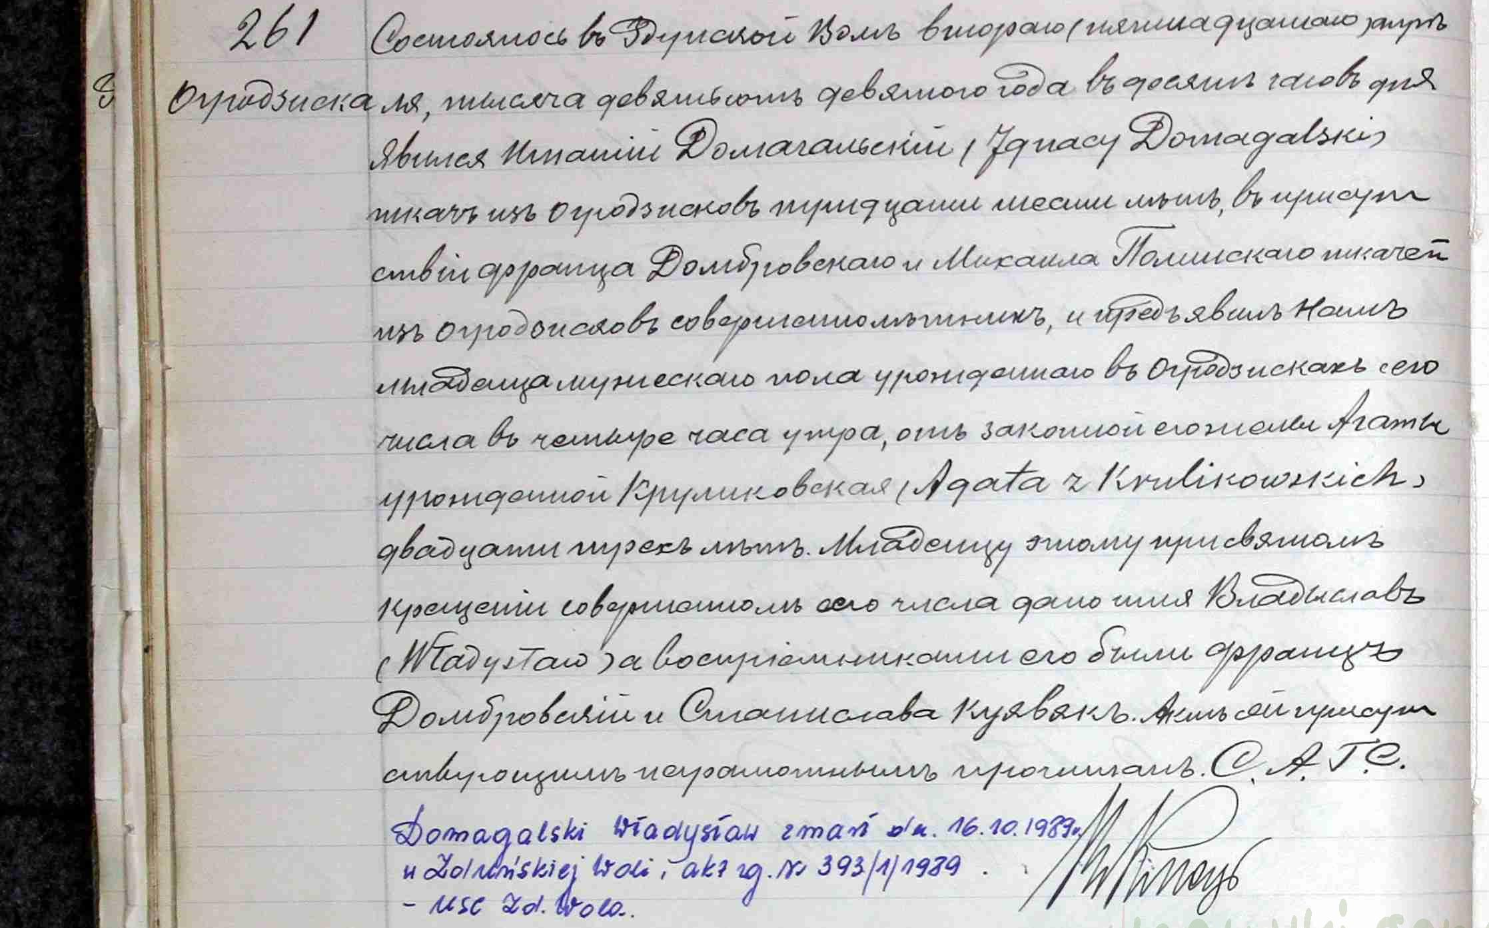 261 Состоялось въ Здунской Волѣ втораго (пятнадцатаго) апрѣ
8 Огродзиска ля, тысяча девятьсотъ девятого года въ десять часовъ дня
Явился Игнатій Домагальскій (Ignacy Domagalski)
ткачъ изъ Огродзисковъ тридцати шести лѣтъ, въ присут
ствіи Франца Домбровскаго и Михаила ткачей
изъ Огродзисковъ совершеннолѣтнихъ, и предъявилъ Намъ
младенца мужескаго пола урожденнаго въ Огродзискахъ сего
числа въ четыре часа утра, отъ законной его жены Агаты
урожденной Круликовская (Agata z Krulikowskich)
двадцати трехъ лѣтъ. Младенцу этому при святомъ
крещеніи совершенномъ сего числа дано имя Владыславъ
(Władysław) а воспріемниками его были Францъ
Домбровскій и Станислава Куявякъ. Актъ сей присут
ствующимъ неграмотнымъ прочитанъ. С. А. Г. С.
Domagalski Władysław zmarł dn. 16.10.1989r.
w Zduńskiej Woli, akt zg. Nr 393/1/1989
- USC Zd. Wola.